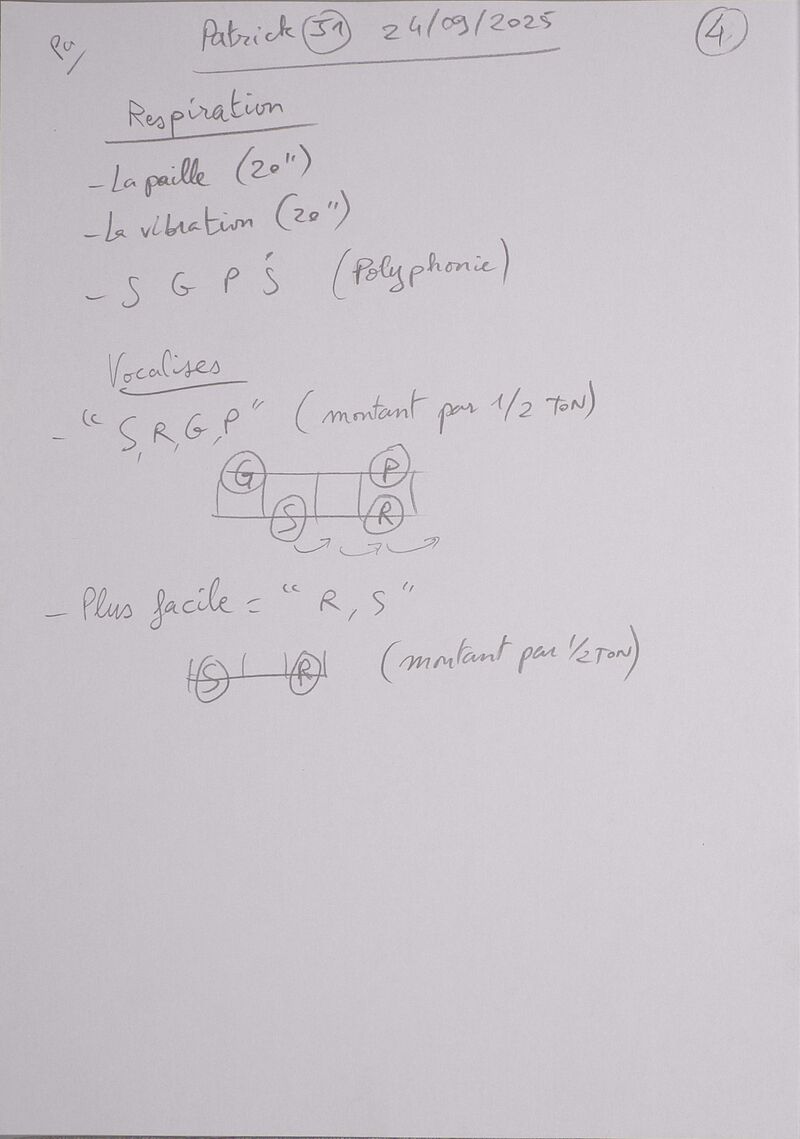 Patrick J1 24/09/2025
4
Respiration
- La paille (20")
- La vibration (20")
- S G P Ṡ (Polyphonie)
Vocalises
- "S, R, G, P" (montant par 1/2 TON)
G P
S R
- Plus facile = "R, S"
S R (montant par 1/2 TON)